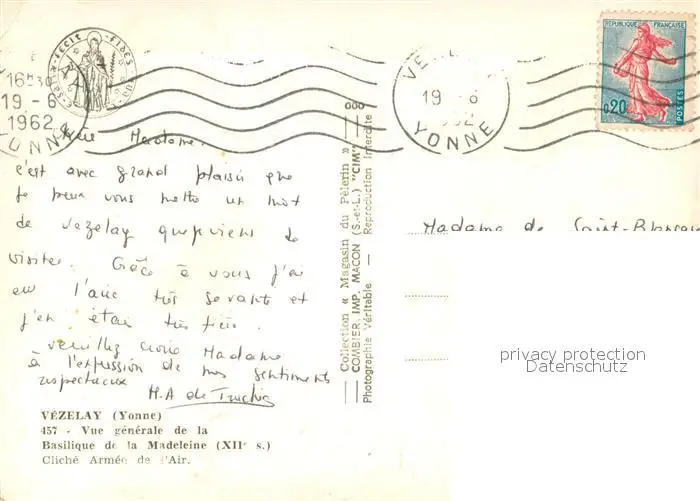 16H30
19 - 6
1962
YONNE
VE
19 - 6
YONNE
REPUBLIQUE FRANÇAISE
0,20
POSTES
Madame.
c'est avec grand plaisir que
je peux vous mettre un mot
de Vezelay que je viens de
visiter. Grâce à vous j'ai
eu l'air très savante et
j'en étais très fière.
veuillez croire Madame
à l'expression de mes sentiments
respectueux
M.A de
VÉZELAY (Yonne)
457 - Vue générale de la
Basilique de la Madeleine (XIIe s.)
Cliché Armée de l'Air.
Collection « Magasin du Pèlerin »
COMBIER, IMP. MACON (S.-et-L.) "CIM"
Photographie Véritable — Reproduction Interdite
Madame de Saint-
privacy protection
Datenschutz